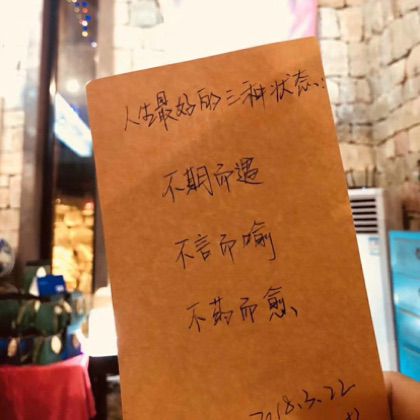 人生最好的三种状态:
不期而遇
不言而喻
不药而愈
2018.3.22